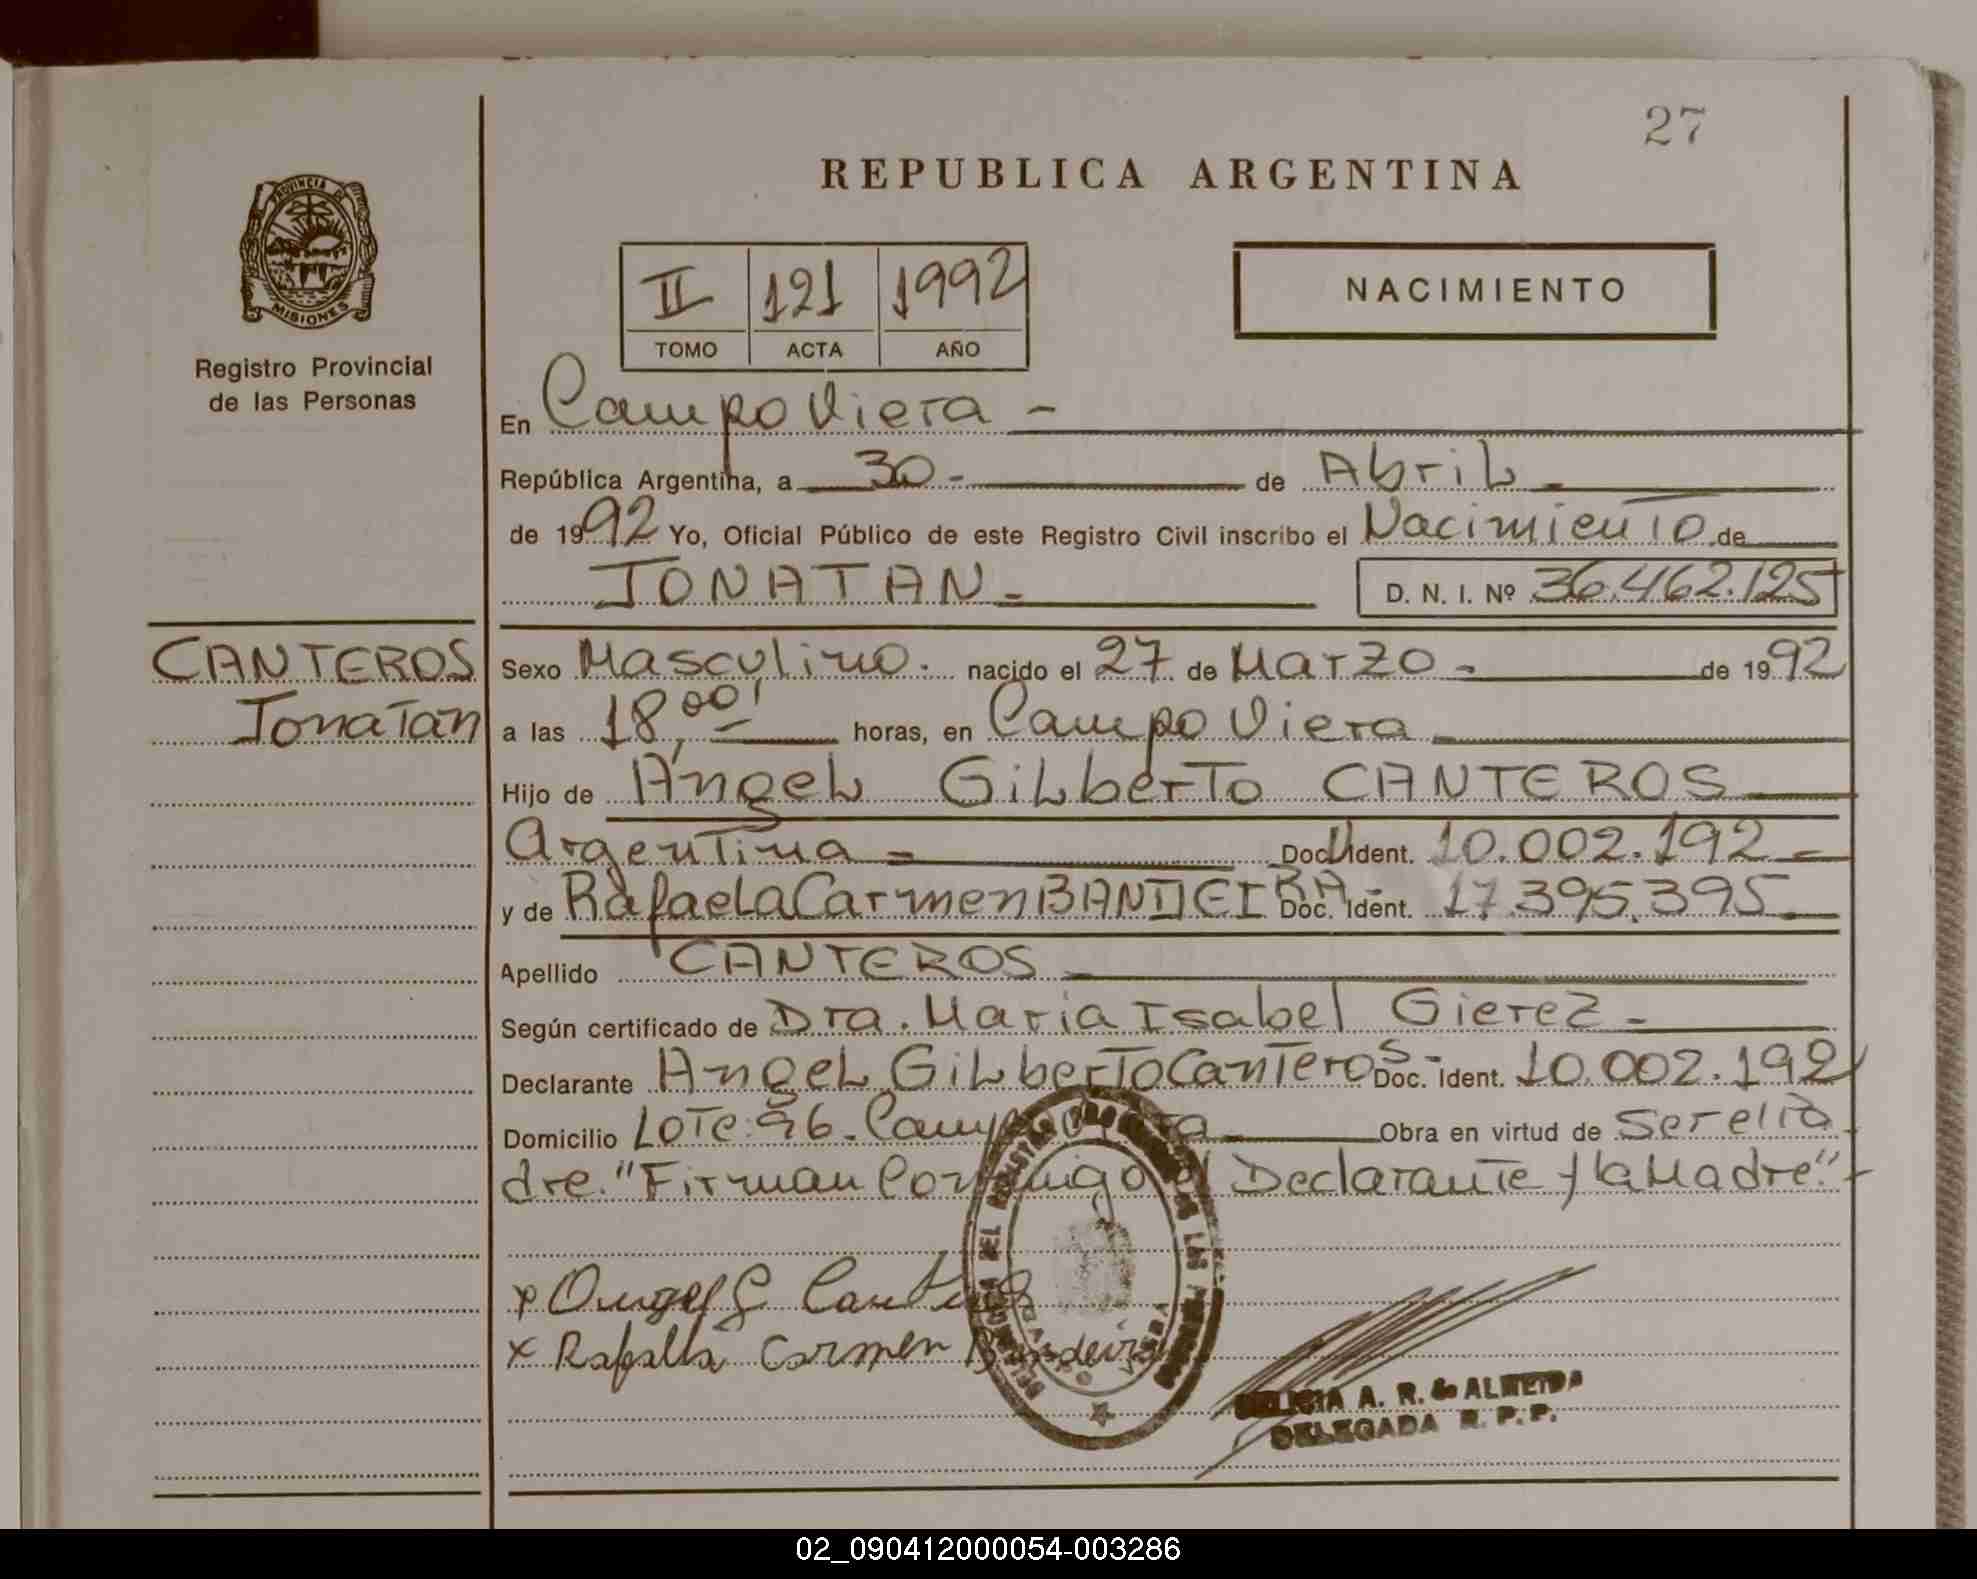 27
REPUBLICA ARGENTINA
PROVINCIA DE
MISIONES
Registro Provincial
de las Personas
II 121 1992
TOMO ACTA AÑO
NACIMIENTO
En Campo Viera -
República Argentina, a 30 - de Abril -
de 1992 Yo, Oficial Público de este Registro Civil inscribo el Nacimiento de
JONATAN - D. N. I. Nº 36.462.125
CANTEROS
Jonatan
Sexo Masculino. nacido el 27 de Marzo - de 1992
a las 18,00' - horas, en Campo Viera
Hijo de Angel Gilberto CANTEROS
Argentina - Doc. Ident. 10.002.192 -
y de Rafaela Carmen BANDEIRA - Doc. Ident. 17.395.395 -
Apellido CANTEROS
Según certificado de Dra. Maria Isabel Gierez -
Declarante Angel Gilberto Canteros - Doc. Ident. 10.002.192
Domicilio Lote: 96 - Campo Viera Obra en virtud de Ser el Pa
dre. "Firman Conmigo el Declarante y la Madre" -
x Angel G Canteros
x Rafaela Carmen Bandeira
DELICIA A. R. de ALMEIDA
DELEGADA R. P. P.
02_090412000054-003286